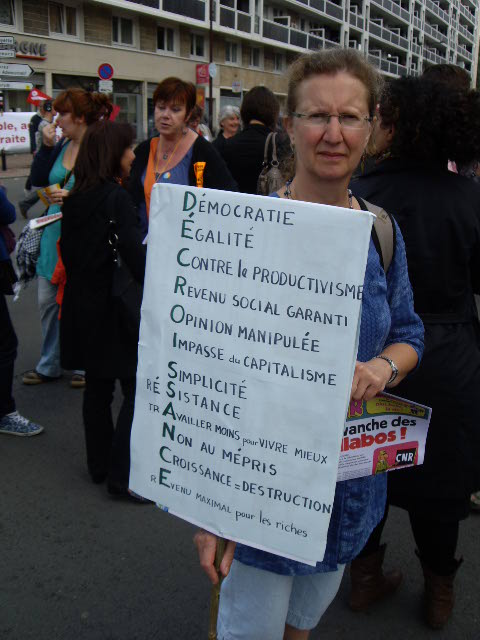 GNE
ble, a
raite
DÉMOCRATIE
ÉGALITÉ
CONTRE la PRODUCTIVISME
REVENU SOCIAL GARANTI
OPINION MANIPULÉE
IMPASSE du CAPITALISME
SIMPLICITÉ
RÉSISTANCE
TRAVAILLER MOINS pour VIVRE MIEUX
NON AU MÉPRIS
CROISSANCE = DESTRUCTION
REVENU MAXIMAL pour les riches
vanche des
llabos !
CNR